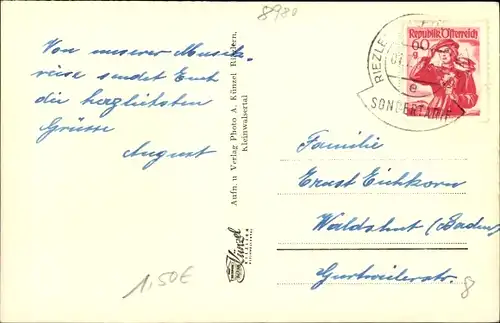 8980
Von unserer Musik-
reise sendet Euch
die herzlichsten
Grüsse
August
Aufn. u Verlag Photo A. Künzel Riezlern,
Kleinwalsertal
Künzel
RIEZLE
SONDERTARIF
e
Republik Österreich
60
g
Familie
Ernst Eichkorn
Waldshut (Baden)
Gurtweilerstr. 8
1,50€